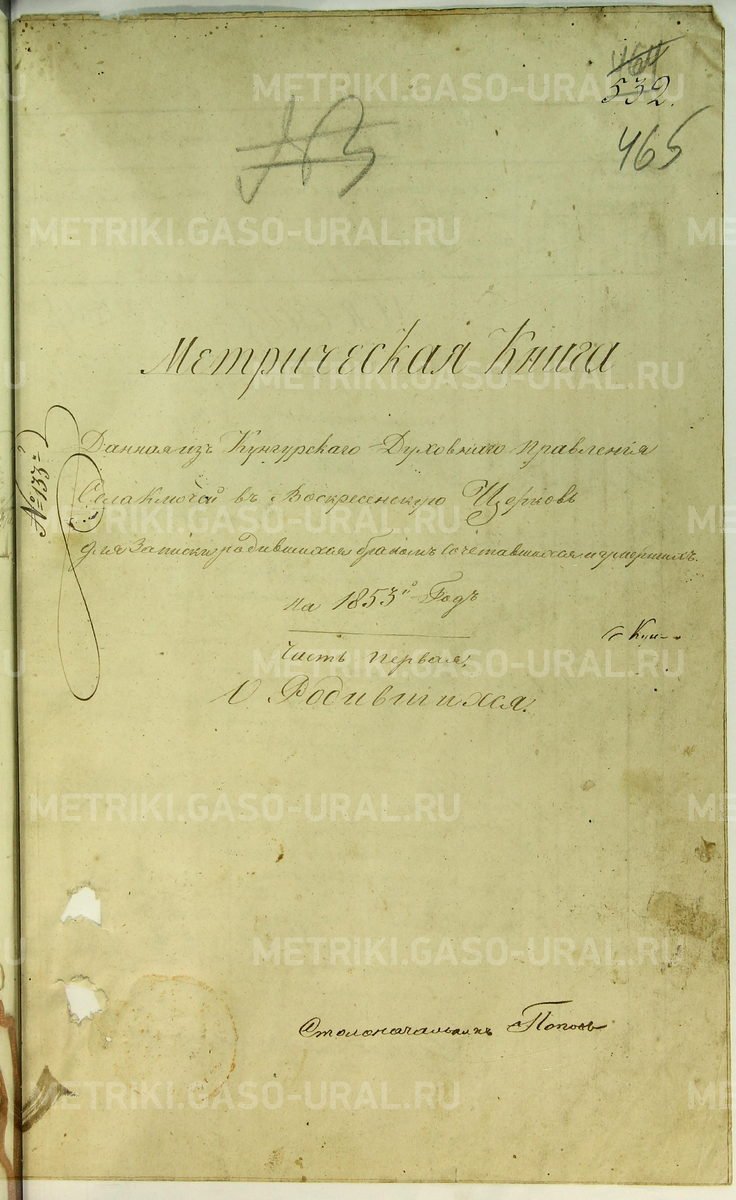 464
532.
465
№ 3
Метрическая Книга
Данная изъ Кунгурскаго Духовнаго Правленія
Села Ключей въ Воскресенскую Церковь
для Записки родившихся бракомъ сочетавшихся и умершихъ.
на 1853й Годъ
Часть первая:
О Родившихся.
№ 133й
Столоначальникъ Поповъ
METRIKI.GASO-URAL.RU